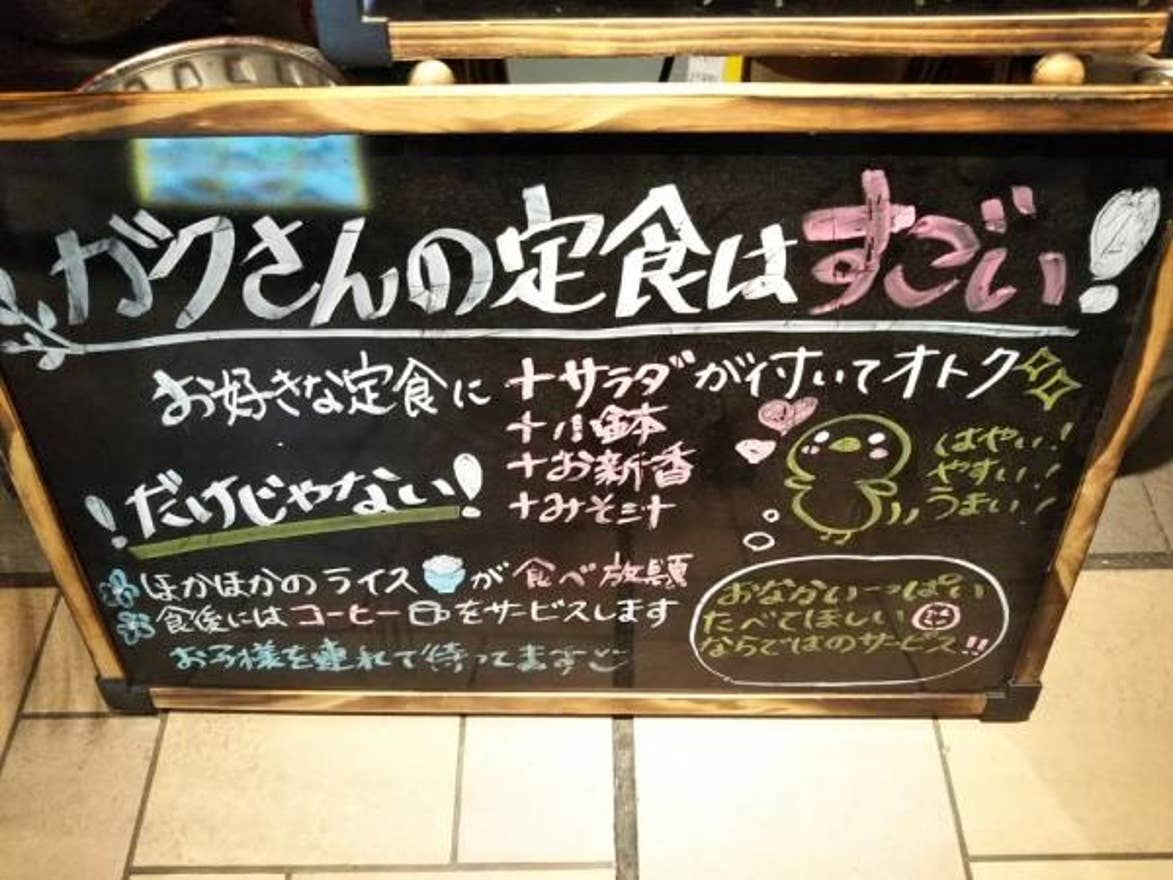 ガクさんの定食はすごい!
お好きな定食に +サラダが付いてオトク
+小鉢
+お新香
+みそ汁
!だけじゃない!
はやい!
やすい!
うまい!
ほかほかのライスが食べ放題
食後にはコーヒーをサービスします
お子様を連れて待ってます
おなかいっぱい
たべてほしい
ならではのサービス!!